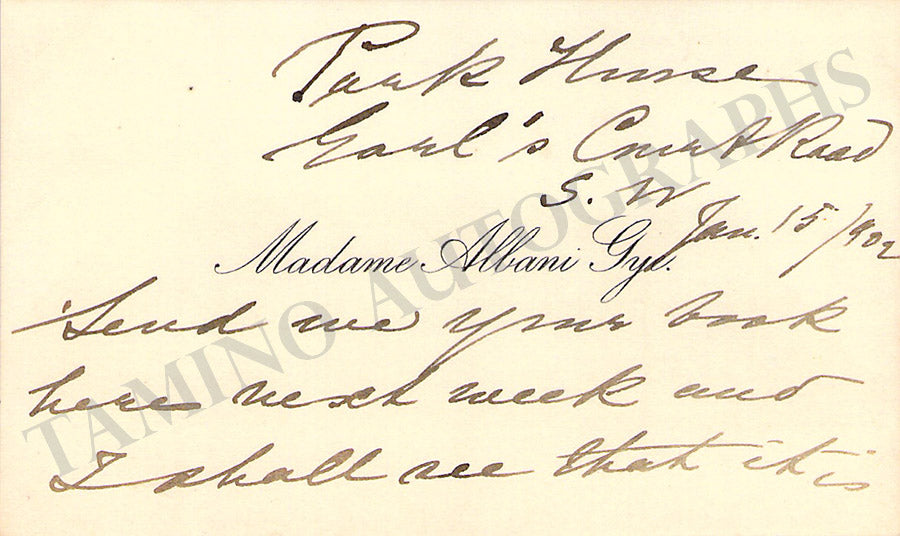 Park House
Earl's Court Road
S. W
Jan. 15/902
Madame Albani Gye.
Send me your book
here next week and
I shall see that it is
TAMINO AUTOGRAPHS